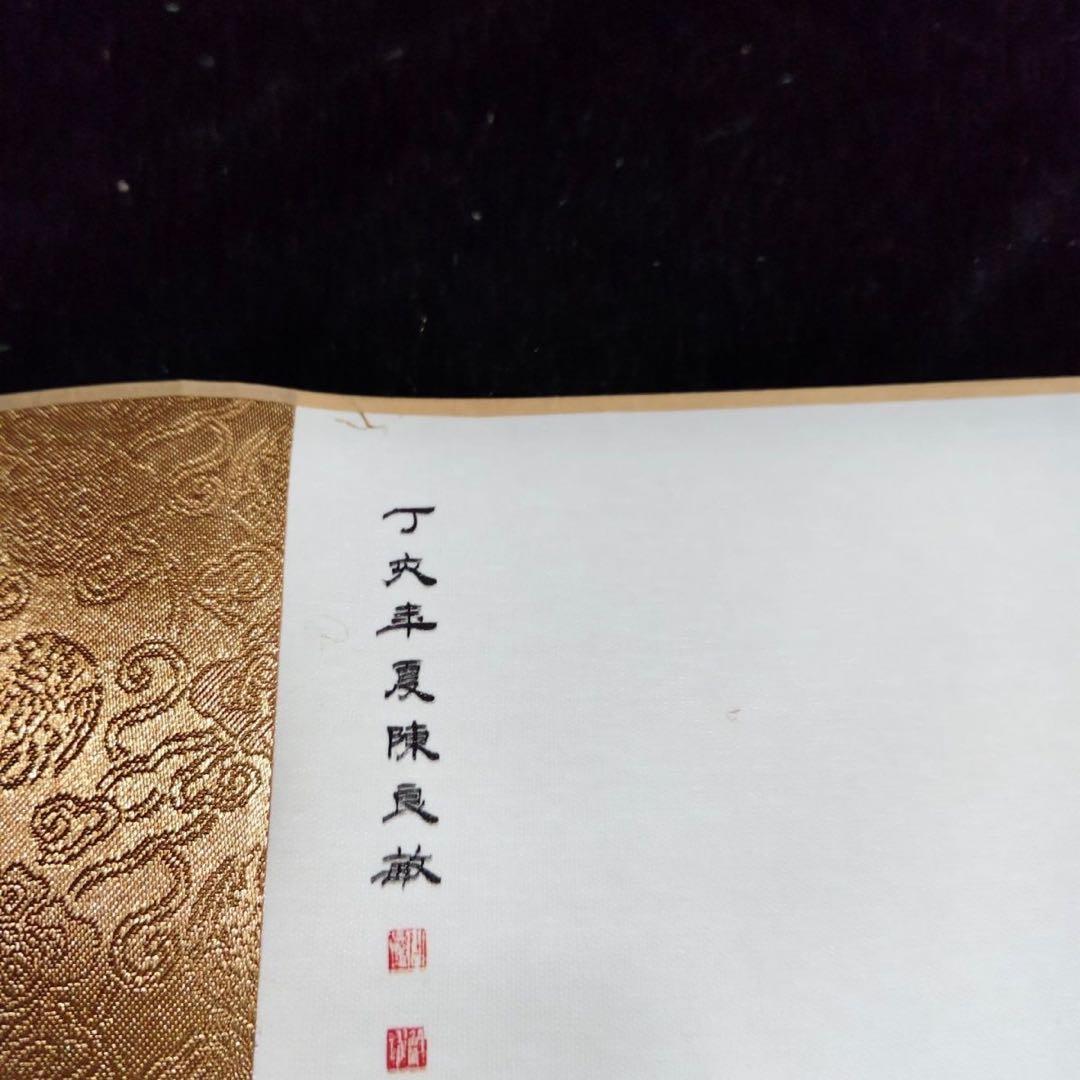 丁亥年夏陳良敏